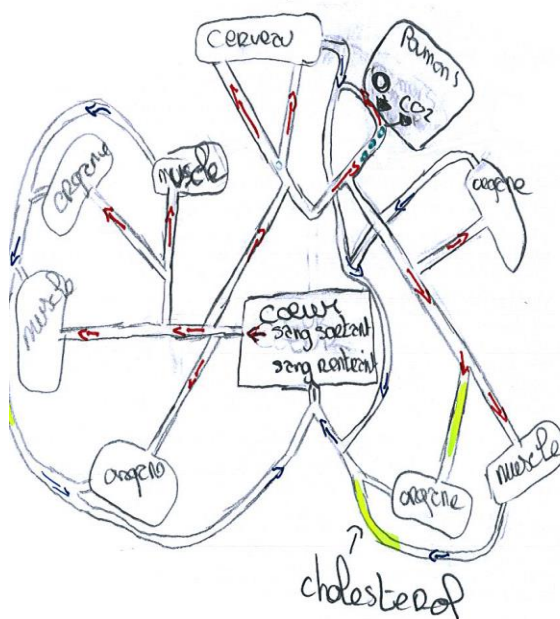 Cerveau
Poumons
O
CO2
organe
muscle
organe
muscle
coeur
sang sortant
sang rentrant
organe
organe
muscle
cholesterol